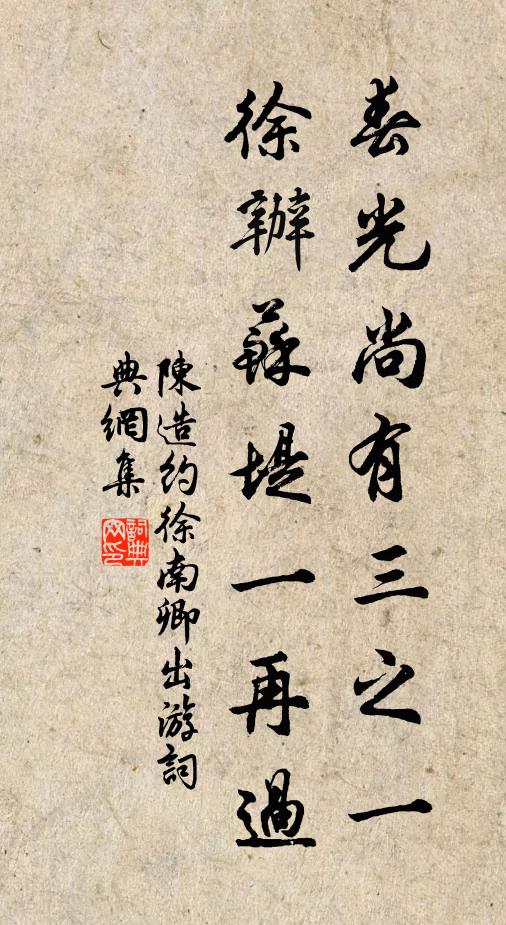 春光尚有三之一
徐辦蘇堤一再過
陳造約徐南卿出游詞
典網集
詞典網印